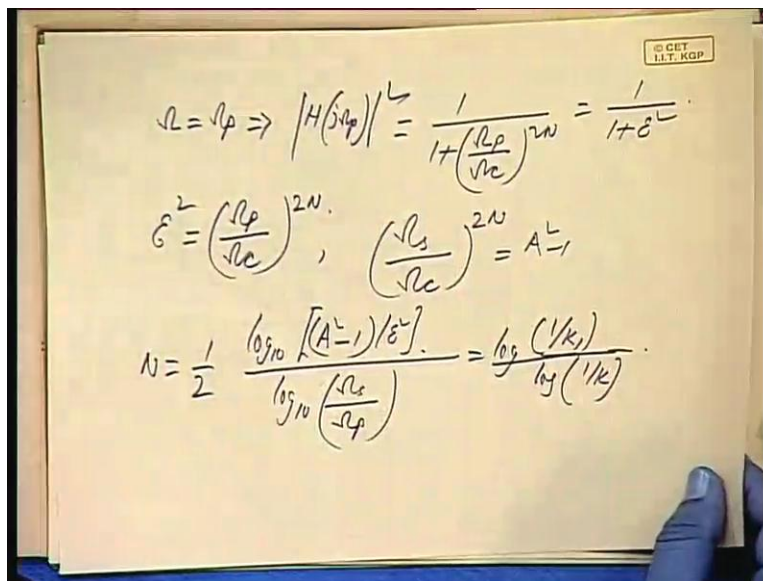 © CET
I.I.T. KGP
Ω = Ωp ⇒ |H(jΩp)|² = 1 / (1+(Ωp/Ωc)^2N) = 1 / (1+ε²).
ε² = (Ωp/Ωc)^2N, (Ωs/Ωc)^2N = A²-1
N = 1/2 log10 [(A²-1)/ε²] / log10 (Ωs/Ωp) = log (1/k1) / log (1/k).